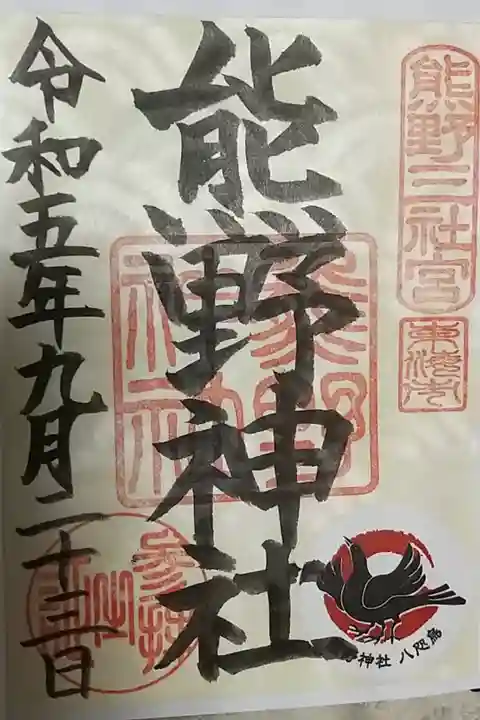 熊野三社宮
東海市
熊野神社
令和五年九月二十三日
神社 八咫烏